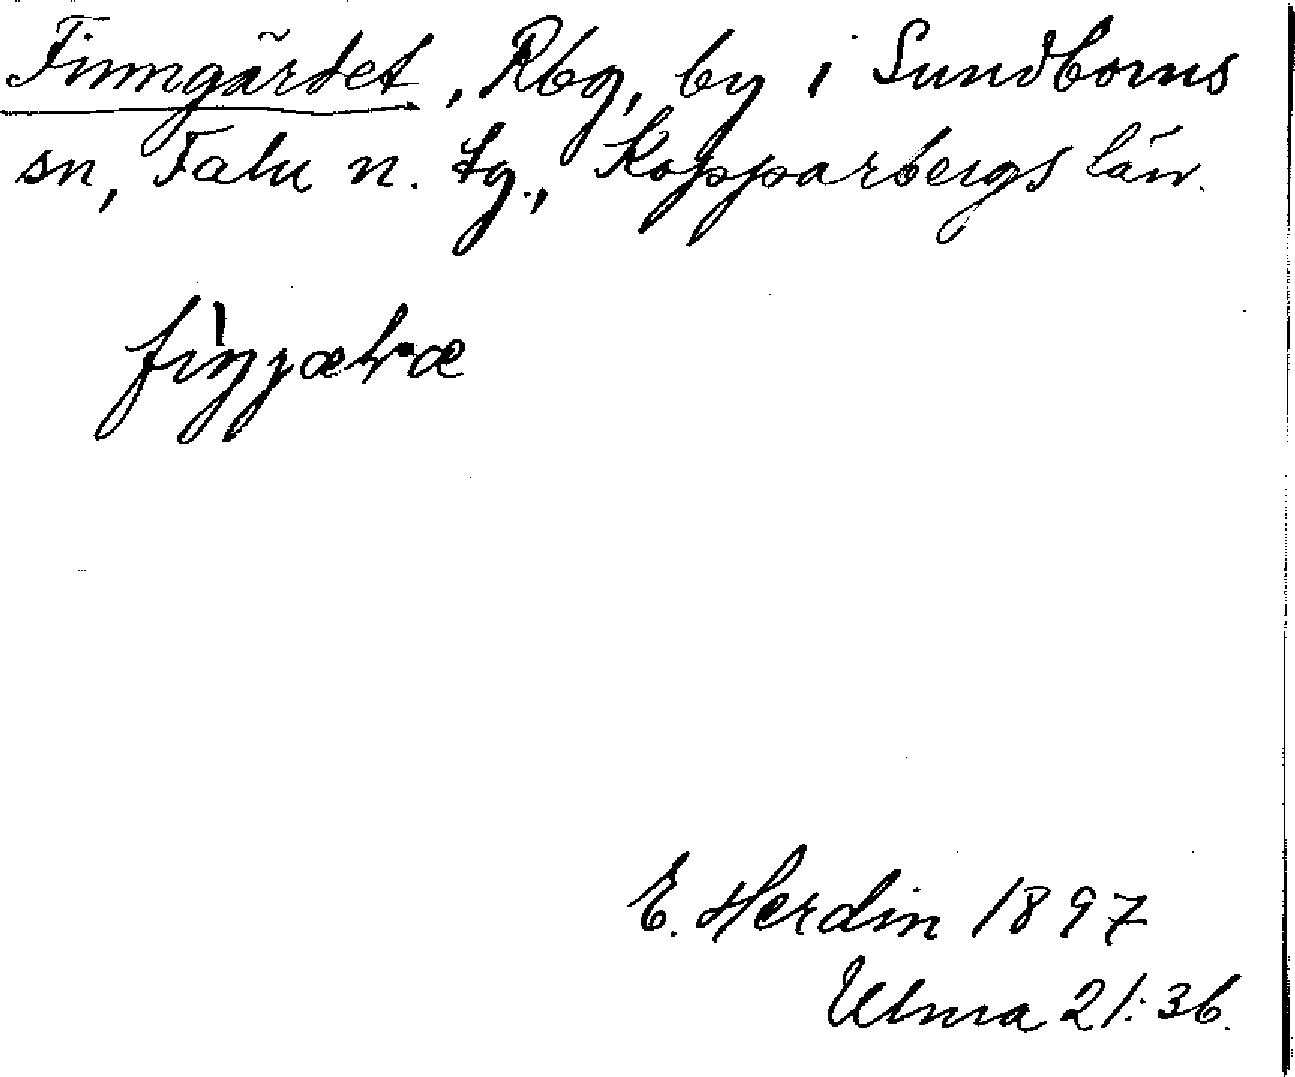 Finngärdet, Rbg, by i Sundborns
sn, Falu n. tg., Kopparbergs län.
E. Herdin 1897
Ulma 21:36.